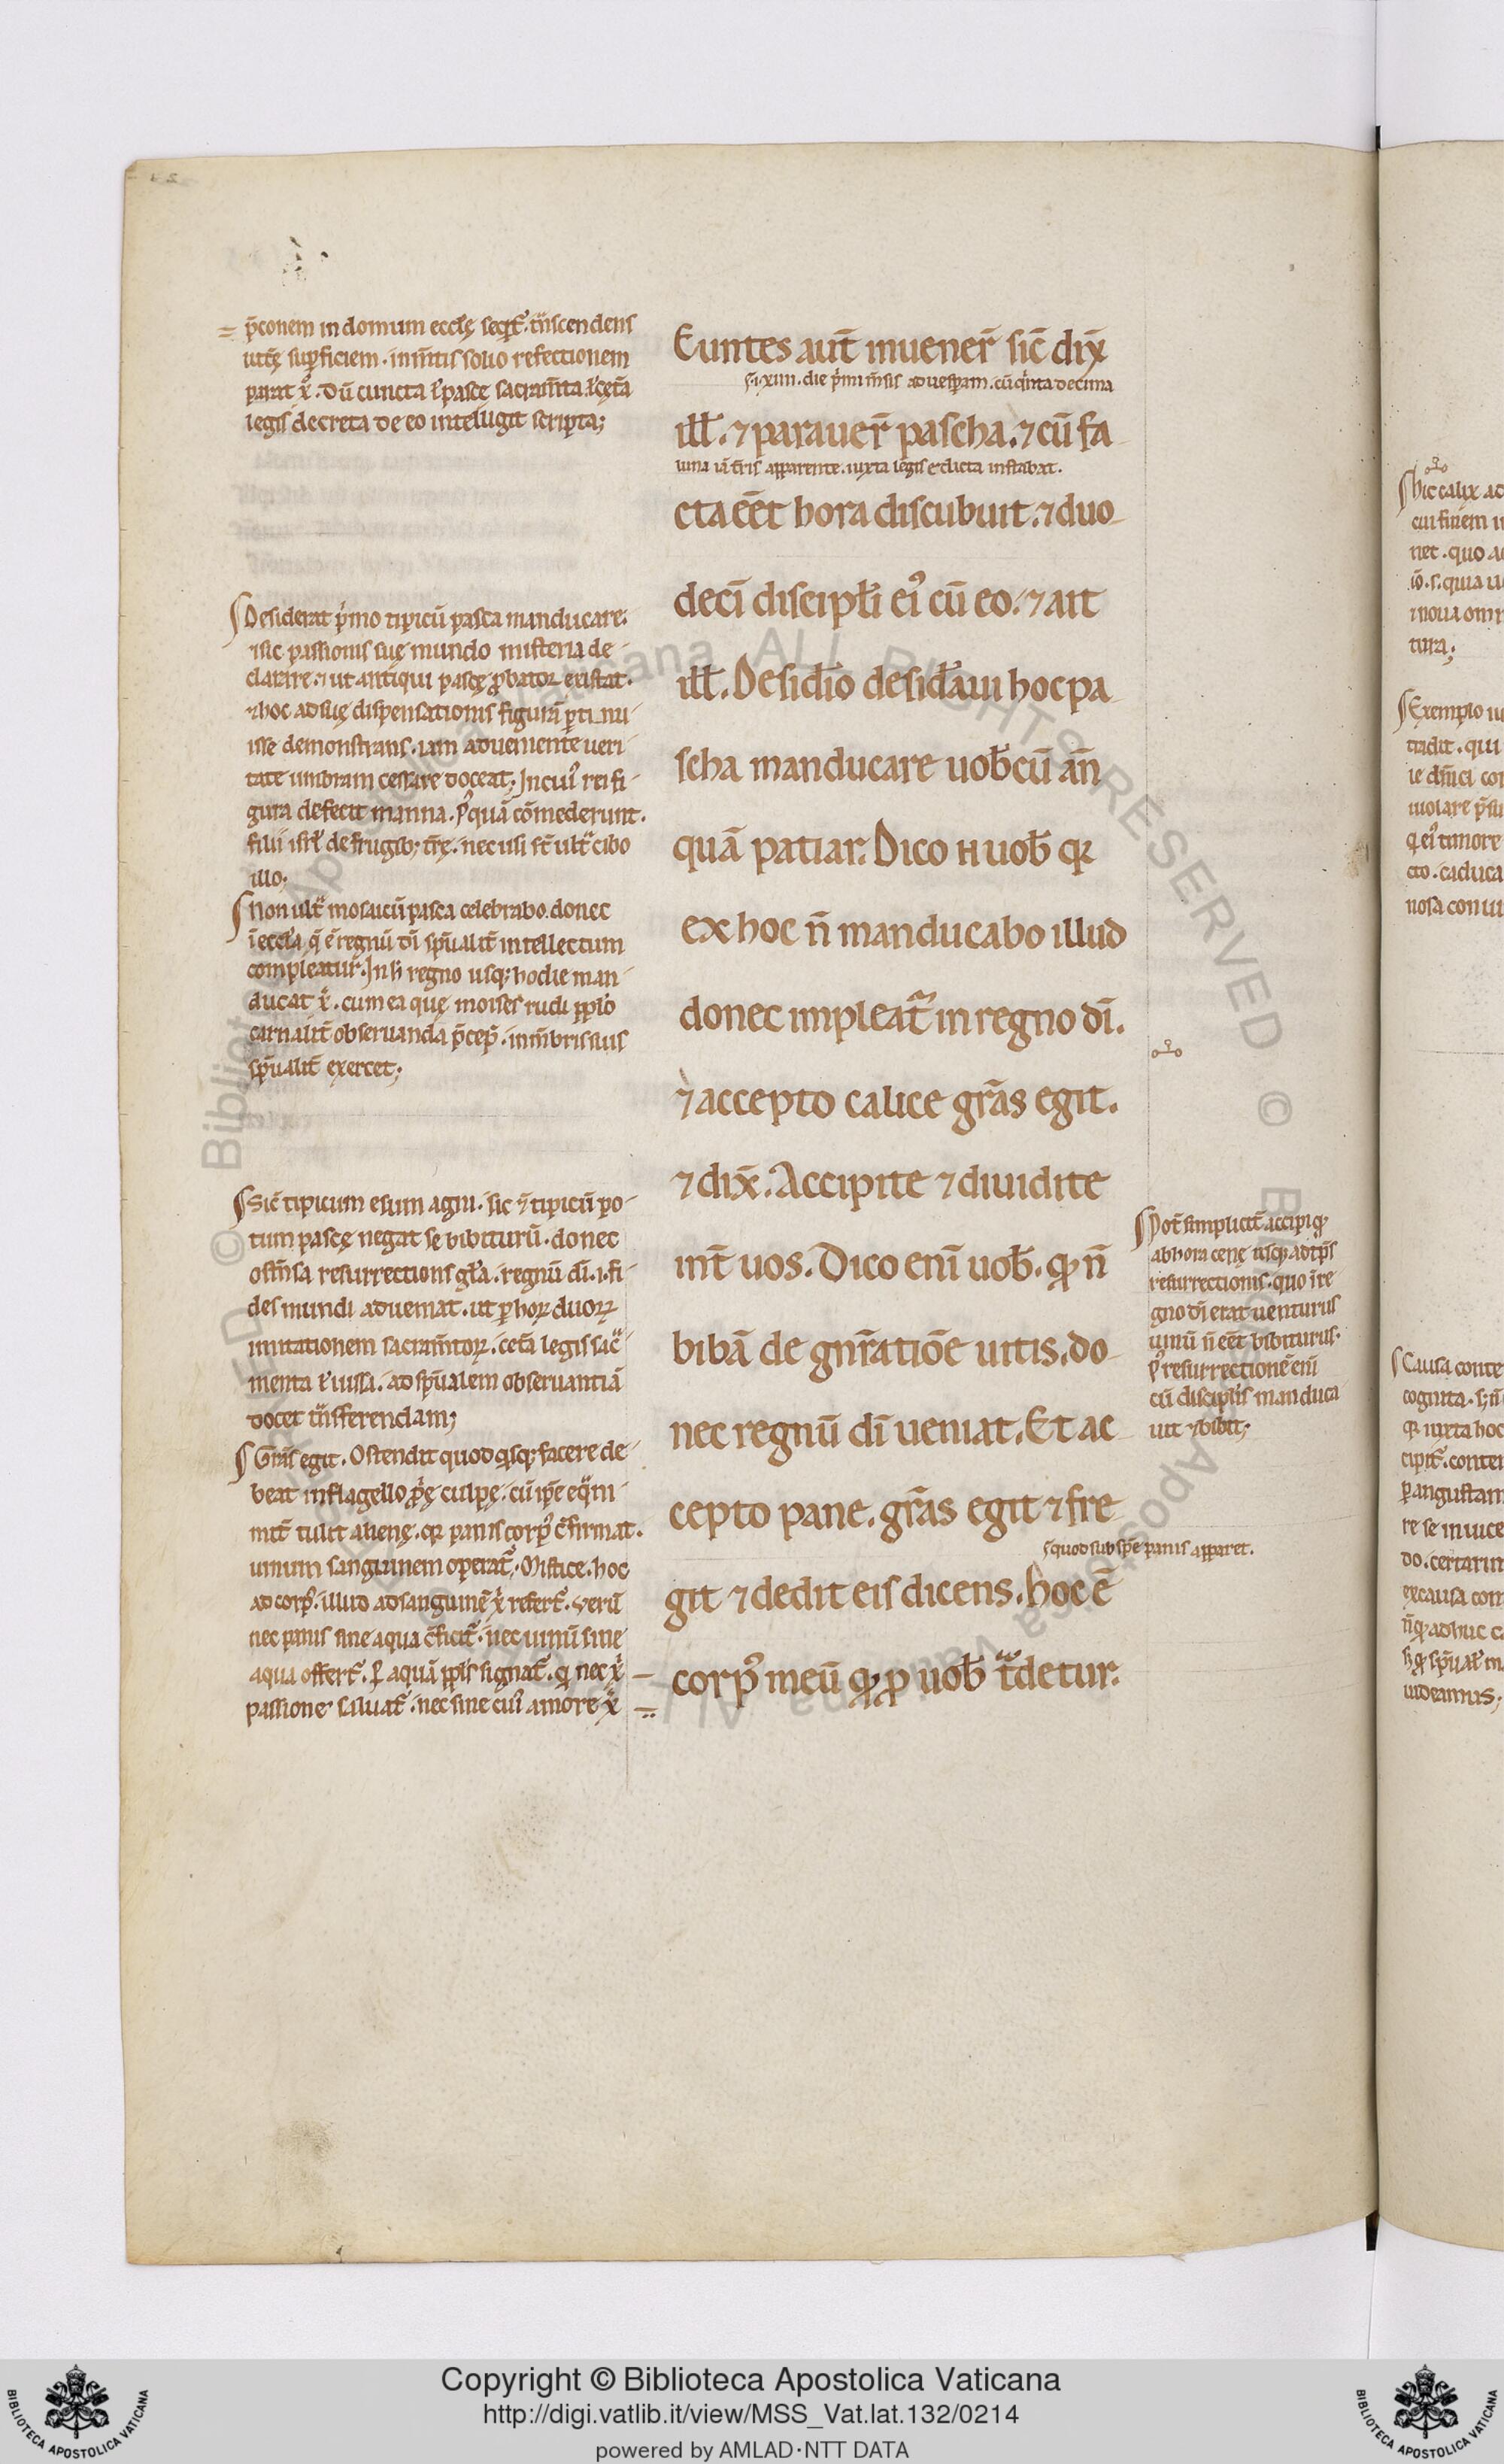 p̄conem in domum eccłę seqt᷑. tn̄scendens
ut̄ę sup̱ficiem. in m̄tis solio refectionem
parat xp̄. Dū cuncta ł pascę sacram̄ta ł cęt̄a
legis decreta de eo intelligit scripta;
Desiderat p̄mo tipicū pasca manducare.
⁊ sic passionis suę mundo misteria de-
clarare. ⁊ ut antiqui pascę ꝓbator existat.
⁊ hoc ad suę dispensationis figurā ꝑtinu-
isse demonstrans. iam adueniente ueri-
tate umbram cessare doceat. In cuiꝰ rei fi-
gura defecit manna. pꝰquā comederunt.
filii isrł de frugib; tr̄ę. nec usi st̄ ult̄ cibo
illo.
Non ult̄ mosaicū pasca celebrabo. donec
ī eccła q̄ ē regnū dī sp̄ualit̄ intellectum
compleatur. In h̄ regno usq; hodie man-
ducat xp̄. cum ea quę moises rudi ppło
carnalit̄ obseruanda p̄cep̄. in m̄bris suis
sp̄ualit̄ exercet;
Sic̄ tipicum esum agni. sic ⁊ tipicū po-
tum pascę negat se bibiturū. donec
ostn̄sa resurrectionis gła. regnū dī .i. fi-
des mundi adueniat. ut ꝑ hoꝝ duoꝝ
imitationem sacram̄toꝝ. cet̄a legis sac̄-
menta ł iussa. ad sp̄ualem obseruantiā
docet tn̄sferendam;
Gr̄as egit. Ostendit quod qsq; facere de-
beat in flagello ꝓp̄ę culpę. cū ip̄e eq̄ni-
mit̄ tulit alienę. qꝛ panis corpꝰ c̄firmat.
uinum sanguinem operat᷑. Mistice. hoc
ad corpꝰ. illud ad sanguinē xp̄ refert᷑. Verū
nec panis sine aqua c̄ficit᷑. nec uinū sine
aqua offert᷑. ꝑ aquā ppłs signat᷑. q̄ nec xp̄
passione saluat᷑. nec sine cuiꝰ amore xp̄
Euntes aut̄ inuener̄ sic̄ dix̄
s. i. xiiii. die p̄mi m̄sis ad uesꝑam. cū q̄nta decima
illł. ⁊ parauer̄ pascha. ⁊ cū fa
luna iā t̄ris apparente. iuxta legis edicta instabat.
cta eēt hora discubuit. ⁊ duo-
decī discipłi eiꝰ cū eo. ⁊ ait
illł. Desiđio desiđaui hoc pa
scha manducare uob̄cū an̄
quā patiar. Dico n̄ uob̄ qꝛ
ex hoc n̄ manducabo illud
donec impleat᷑ in regno dī.
⁊ accepto calice gr̄as egit.
⁊ dix̄. Accipite ⁊ diuidite
int̄ uos. Dico enī uob̄. qđ n̄
bibā de gn̄ratiōe uitis. do-
nec regnū dī ueniat. Et ac
cepto pane. gr̄as egit ⁊ fre
s. quod sub sp̄e panis apparet.
git ⁊ dedit eis dicens. hoc ē
corpꝰ meū qđ ꝓ uob̄ t̄detur.
Pot̄ simplicit̄ accipi qđ
ab hora cenę usq; ad tp̄s
resurrectionis. quo ī re-
gno dī erat uenturus
uinū n̄ eēt bibiturus.
pꝰ resurrectionē enī
cū discipłis manduca
uit ⁊ bibit;
hic calix ad
nec. quo
tura;
Exemplo
tradit. qui
Causa conte
cognita.
re se inuice
do. certarin
ex causa con
iudeamus.
© Biblioteca Apostolica Vaticana ALL RIGHTS RESERVED
Copyright © Biblioteca Apostolica Vaticana
http://digi.vatlib.it/view/MSS_Vat.lat.132/0214
powered by AMLAD·NTT DATA
BIBLIOTECA APOSTOLICA VATICANA
BIBLIOTECA APOSTOLICA VATICANA